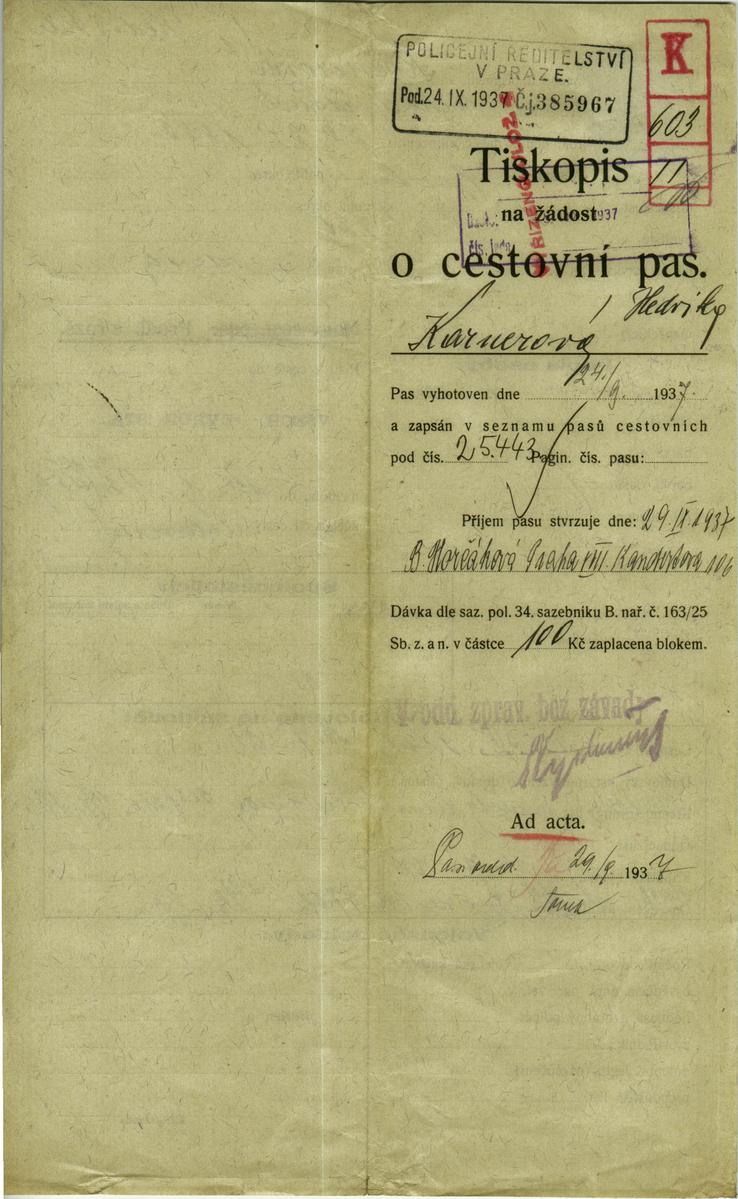 POLICEJNÍ ŘEDITELSTVÍ
V PRAZE.
Pod. 24. IX. 1937 Č.j. 385967
K
603
11
Tiskopis
na žádost
1937
čís. jedn.
o cestovní pas.
Karnerová Hedvika
Pas vyhotoven dne 24./9. 1937.
a zapsán v seznamu pasů cestovních
pod čís. 25.443 Pagin. čís. pasu:
Příjem pasu stvrzuje dne: 29. IX. 1937
B. Horčáková Praha VIII.
Dávka dle saz. pol. 34. sazebníku B. nař. č. 163/25
Sb. z. a n. v částce 100 Kč zaplacena blokem.
V odd. zprav. bez závady
Ad acta.
29./9. 1937